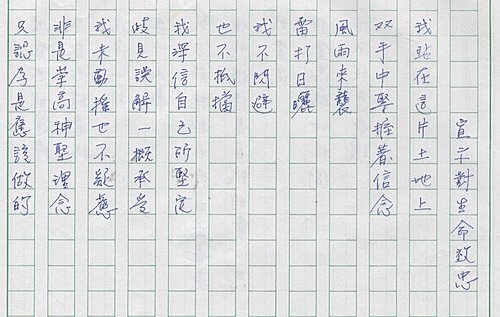 宣示對生命效忠
我站在這片土地上
双手中緊握著信念
風雨來襲
雷打日曬
我不閃避
也不抵擋
我深信自己所堅定
歧見誤解一概承受
我未動搖也不疑惑
非是崇高神聖理念
只認為是應該做的